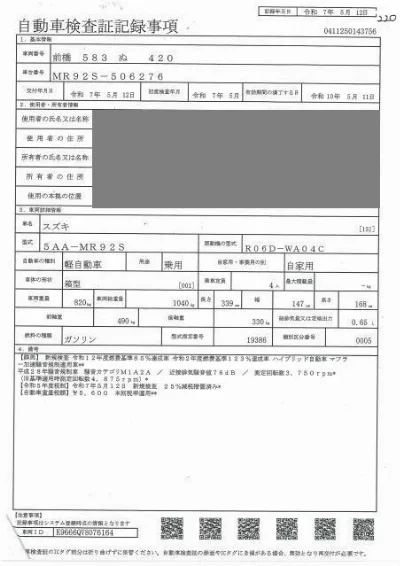 記録年月日 令和 7年 5月 12日
220
自動車検査証記録事項
0411250143756
1. 基本情報
車両番号 前橋 583 ぬ 420
車台番号 MR92S-506276
交付年月日 令和 7年 5月 12日 初度検査年月 令和 7年 5月 有効期間の満了する日 令和 10年 5月 11日
2. 使用者・所有者情報
使用者の氏名又は名称
使用者の住所
所有者の氏名又は名称
所有者の住所
使用の本拠の位置
3. 車両詳細情報
車名 スズキ [131]
型式 5AA-MR92S 原動機の型式 R06D-WA04C
自動車の種別 軽自動車 用途 乗用 自家用・事業用の別 自家用
車体の形状 箱型 [001] 乗車定員 4人 最大積載量 -kg
車両重量 820kg 車両総重量 1040kg 長さ 339cm 幅 147cm 高さ 168cm
前軸重 490kg 後軸重 330kg 総排気量又は定格出力 0.65L
燃料の種類 ガソリン 型式指定番号 19386 類別区分番号 0005
4. 備考
【群馬】 新規検査 令和12年度燃費基準85%達成車 令和2年度燃費基準123%達成車 ハイブリッド自動車 マフラ
ー加速騒音規制適用車**
平成28年騒音規制車 騒音カテゴリM1A2A / 近接排気騒音値76dB / 測定回転数3,750rpm*
(旧基準適用時測定回転数4,875rpm)*
【令和5年度税制】令和7年5月12日 新規検査 25%減税措置済み*
【自動車重量税額】¥5,600 本則税率適用**
【注意事項】
記録事項はシステム登録時点の情報となります
車両ID E9666Q78076164
車検査証のICタグ部分は折り曲げずに保管ください。自動車検査証の券面やICタグにき損がある場合、無効となり再交付が必要です。